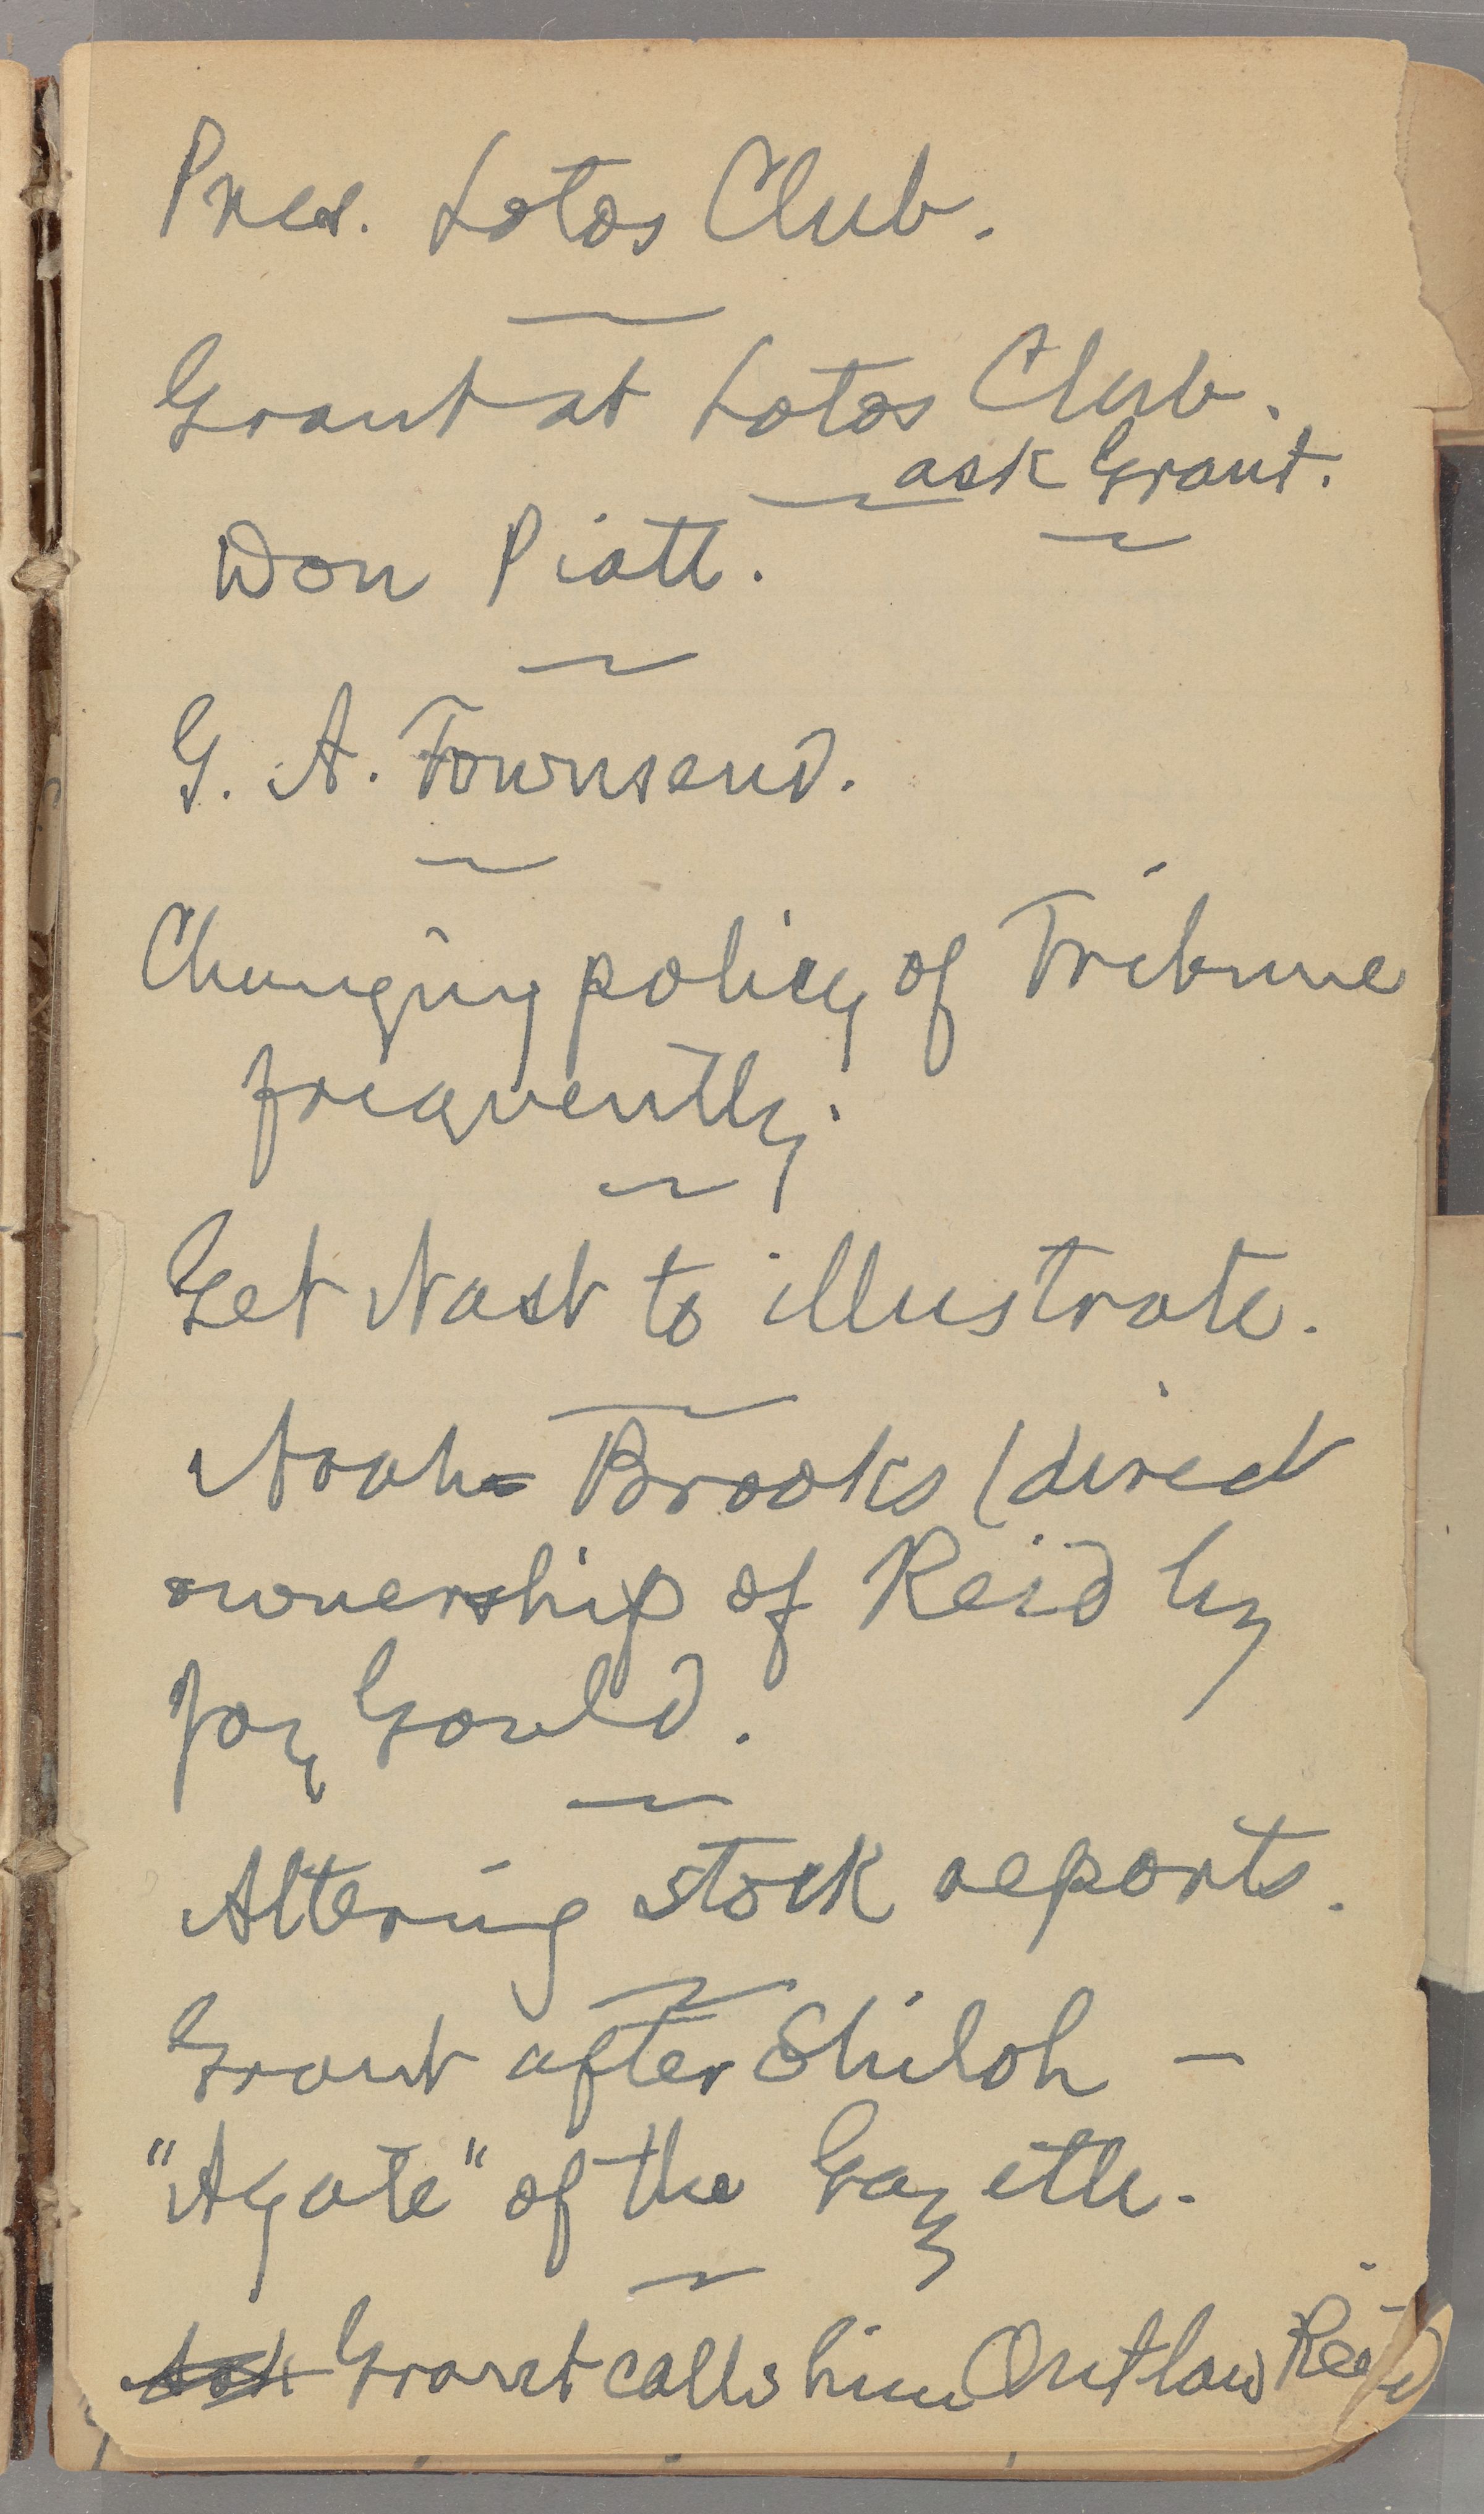 Pres. Lotos Club.
Grant at Lotos Club.
ask Grant.
Don Piatt.
G. A. Townsend.
Changing policy of Tribune
frequently.
Get Nast to illustrate.
Noah Brooks (direct
ownership of Reid by
Jay Gould.
Altering stock reports.
Grant after Shiloh —
"Agate" of the Gazette.
Ask Grant calls him Outlaw Reid